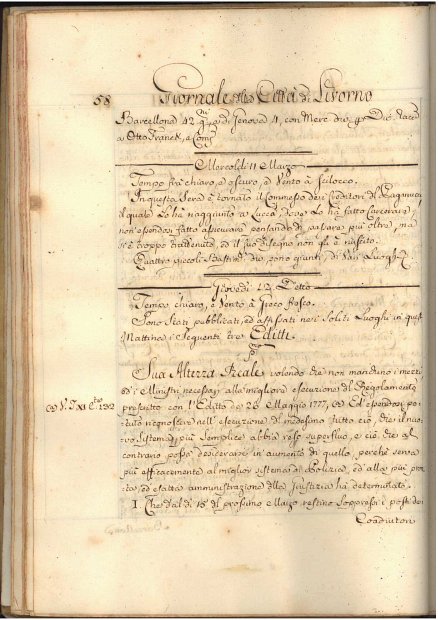 58 Giornale della Città di Livorno
Barcellona 42 g.ni, e di Genova 4, con Merc. div.
a Otto Franck, e Comp.
Mercoldi 11 Marzo
Tempo fra chiaro, e oscuro, e Vento à Scilocco.
In questa Sera è tornato il Commesso dei Creditori del
il quale Lo hà raggiunto a Lucca, dove Lo hà fatto Carcerare,
non essendosi fatto assicurare pensando di varare più oltre, mà
si è troppo trattenuto, ed il suo disegno non gli è riuscito.
Quattro piccoli Bastim.ti div. sono giunti di Varj Luoghi.
Giovedi 12 Detto
Tempo chiaro, e Vento à Greco fresco.
Sono Stati pubblicati, ed affissati nei Soliti Luoghi in questa
Mattina i Seguenti tre Editti
Sua Altezza Reale volendo che non manchino i mezzi
ed i Ministri necessarj alla migliore esecuzione del Regolamento
prescritto con l'Editto de 26 Maggio 1777, Ed essendosi po-
tuto riconoscere nell'esecuzione del medesimo tutto ciò, che il nuo-
vo Sistema più Semplice abbia reso superfluo, e ciò che al
contrario possa desiderarsi in aumento di quello, perchè serva
più efficacemente al miglior sistema di Polizia, ed alla più pron-
ta, ed esatta amministrazione della Giustizia hà determinato.
I. Che dal dì 15 del prossimo Marzo restino Soppressi i posti dei
Coadiutori